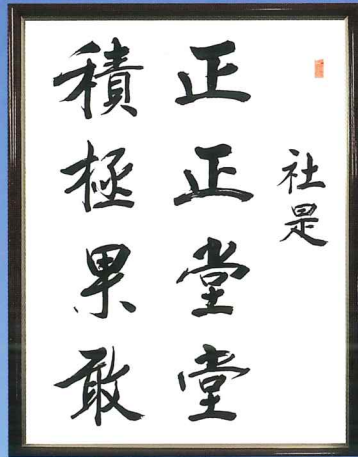 社是
正正堂堂
積極果敢